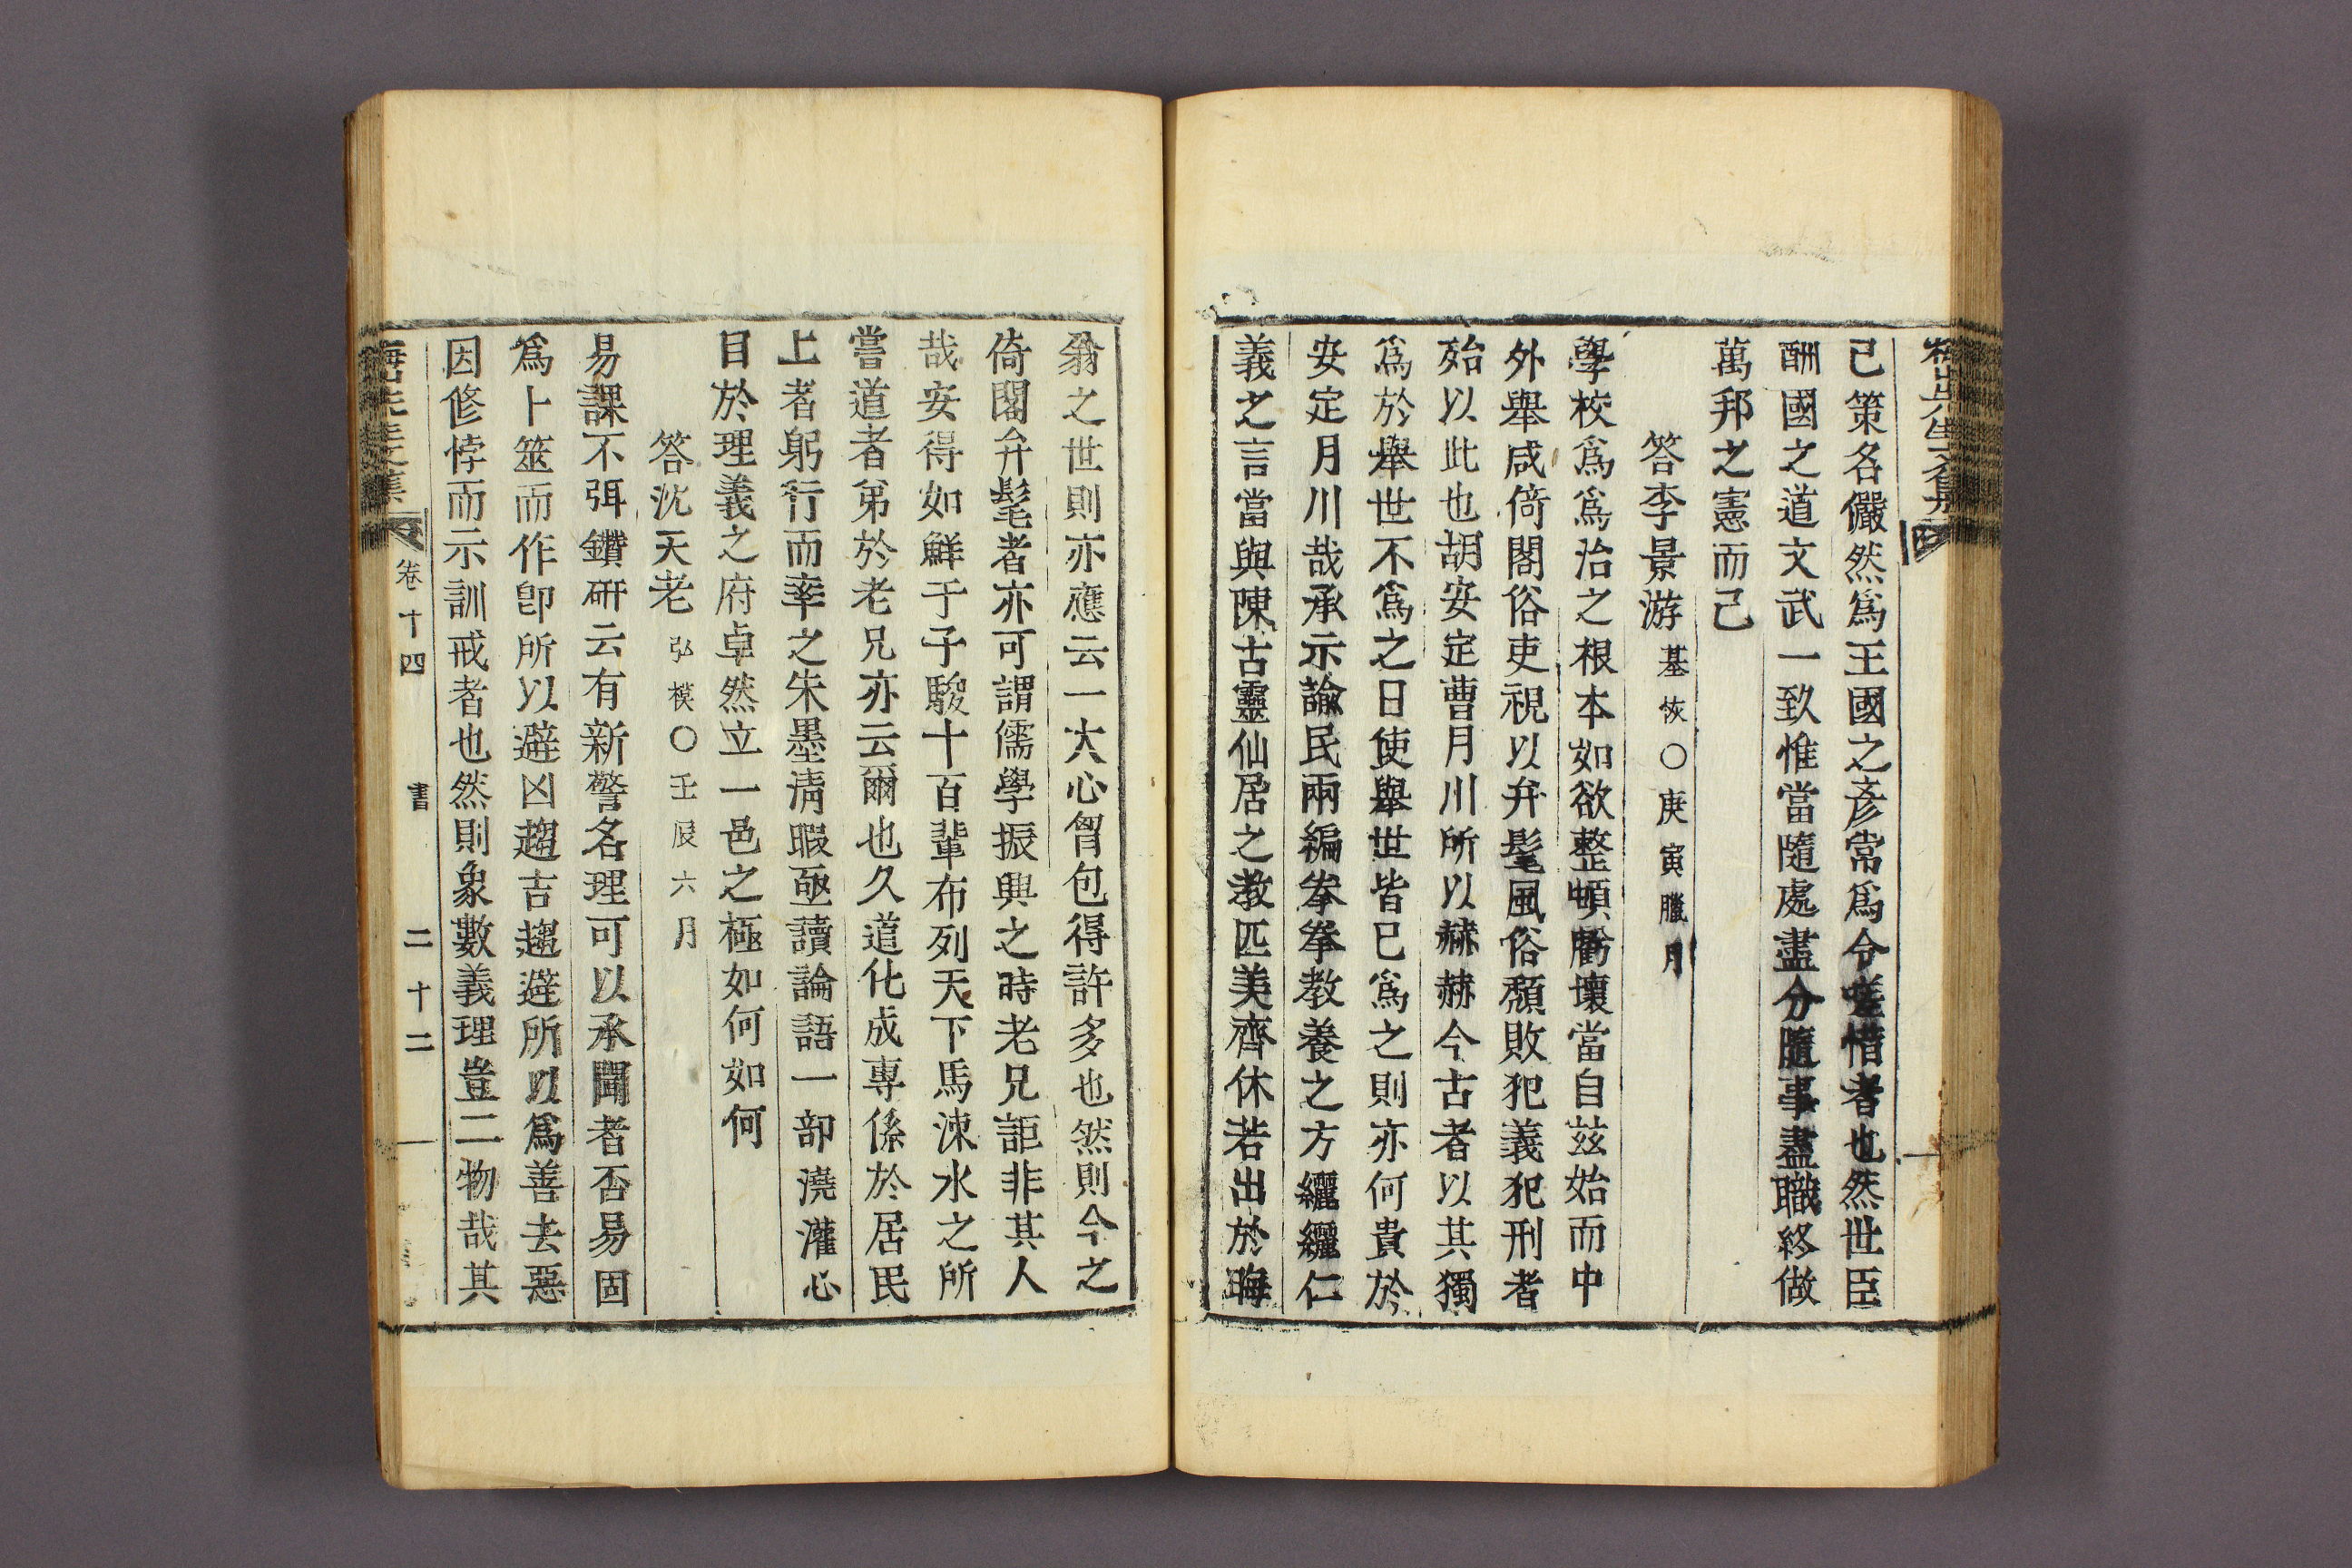 己策名儼然爲王國之彥常爲令嗟惜者也然世臣
酬國之道文武一致惟當隨處盡分隨事盡職終做
萬邦之憲而己
答李景游基恢○庚寅臘月
學校爲爲治之根本如欲整頓虧壞當自茲始而中
外舉咸倚閣俗吏視以弁髦風俗頹敗犯義犯刑者
殆以此也胡安定曹月川所以赫赫今古者以其獨
爲於舉世不爲之日使舉世皆已爲之則亦何貴於
安定月川哉承示諭民兩編拳拳教養之方纚纚仁
義之言當與陳古靈仙居之教匹美齊休若出於晦
翁之世則亦應云一大心胷包得許多也然則今之
倚閣弁髦者亦可謂儒學振興之時老兄詎非其人
哉安得如鮮于子駿十百輩布列天下馬涑水之所
嘗道者第於老兄亦云爾也久道化成專係於居民
上者躬行而率之朱墨淸暇亟讀論語一部澆灌心
目於理義之府卓然立一邑之極如何如何
答沈天老弘模○壬辰六月
易課不弭鑽硏云有新警名理可以承聞者否易固
爲卜筮而作卽所以避凶趨吉趨避所以爲善去惡
因修悖而示訓戒者也然則象數義理豈二物哉其
梅山先生文集 卷十四 書 二十二